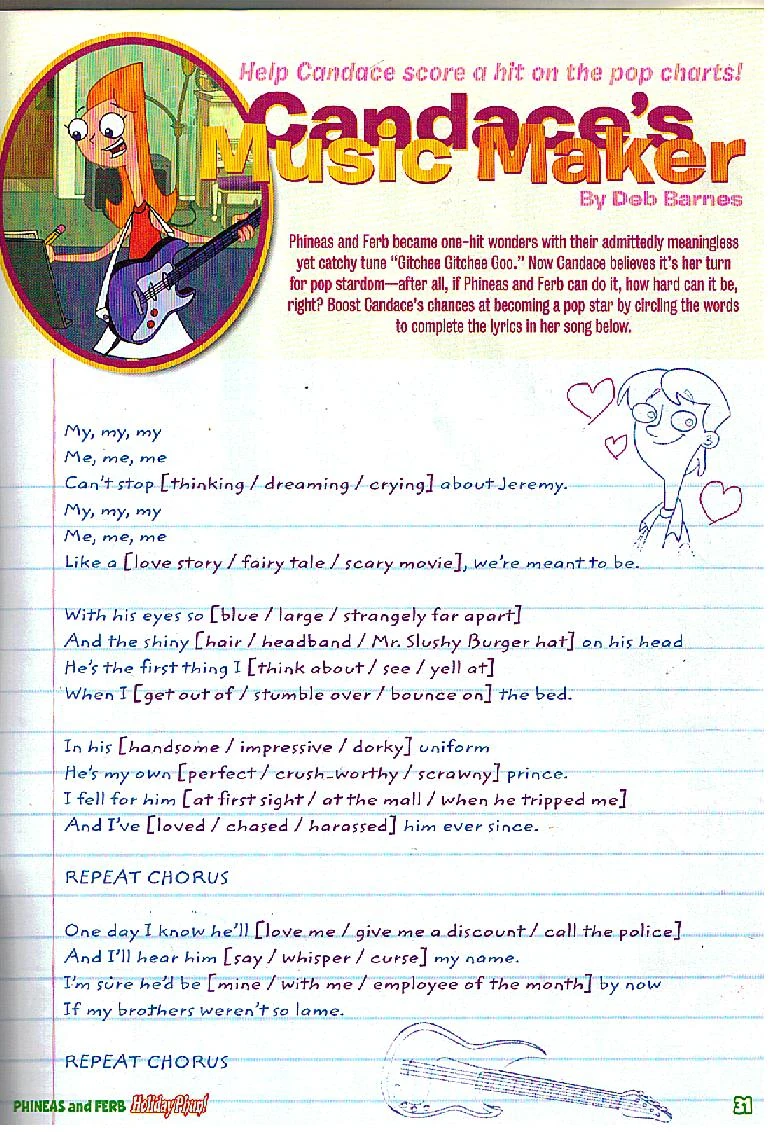 Help Candace score a hit on the pop charts!
Candace's
Music Maker
By Deb Barnes
Phineas and Ferb became one-hit wonders with their admittedly meaningless
yet catchy tune "Gitchee Gitchee Goo." Now Candace believes it's her turn
for pop stardom—after all, if Phineas and Ferb can do it, how hard can it be,
right? Boost Candace's chances at becoming a pop star by circling the words
to complete the lyrics in her song below.
My, my, my
Me, me, me
Can't stop [thinking / dreaming / crying] about Jeremy.
My, my, my
Me, me, me
Like a [love story / fairy tale / scary movie], we're meant to be.
With his eyes so [blue / large / strangely far apart]
And the shiny [hair / headband / Mr. Slushy Burger hat] on his head
He's the first thing I [think about / see / yell at]
When I [get out of / stumble over / bounce on] the bed.
In his [handsome / impressive / dorky] uniform
He's my own [perfect / crush-worthy / scrawny] prince.
I fell for him [at first sight / at the mall / when he tripped me]
And I've [loved / chased / harassed] him ever since.
REPEAT CHORUS
One day I know he'll [love me / give me a discount / call the police]
And I'll hear him [say / whisper / curse] my name.
I'm sure he'd be [mine / with me / employee of the month] by now
If my brothers weren't so lame.
REPEAT CHORUS
PHINEAS and FERB Holiday Phun!
31